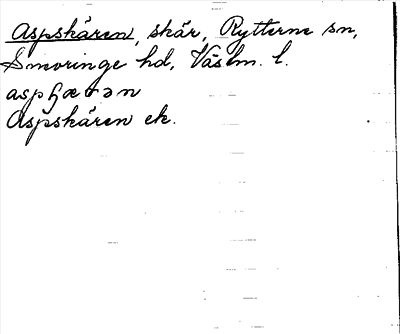 Aspskären, skär, Rytterne sn,
Snevringe hd, Västm. l.
Aspskären ek.